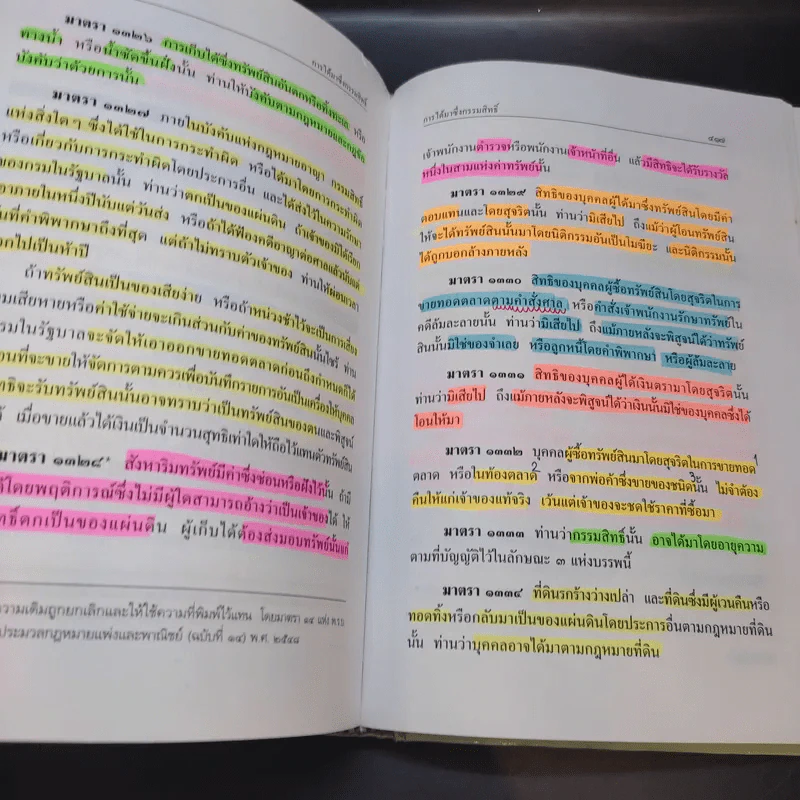 การได้มาซึ่งกรรมสิทธิ์
มาตรา ๑๓๒๖ การเก็บได้ซึ่งทรัพย์สินอันตกหรือทิ้งทะเล หรือ
ทางน้ำ หรือน้ำซัดขึ้นฝั่งนั้น ท่านให้บังคับตามกฎหมายและกฎข้อ
บังคับว่าด้วยการนั้น
มาตรา ๑๓๒๗ ภายในบังคับแห่งกฎหมายอาญา กรรมสิทธิ์
แห่งสิ่งใดๆ ซึ่งได้ใช้ในการกระทำผิด หรือได้มาโดยการกระทำผิด
หรือเกี่ยวกับการกระทำผิดโดยประการอื่น และได้ส่งไว้ในความรักษา
ของกรมในรัฐบาลนั้น ท่านว่าตกเป็นของแผ่นดิน ถ้าเจ้าของมิได้เรียก
ภายในหนึ่งปีนับแต่วันส่ง หรือถ้าได้ฟ้องคดีอาญาต่อศาลแล้วนับแต่
วันที่คำพิพากษาถึงที่สุด แต่ถ้าไม่ทราบตัวเจ้าของ ท่านให้ผ่อนเวลา
ออกไปเป็นห้าปี
ถ้าทรัพย์สินเป็นของเสียง่าย หรือถ้าหน่วงช้าไว้จะเป็นการเสี่ยง
ความเสียหายหรือค่าใช้จ่ายจะเกินส่วนกับค่าของทรัพย์สินนั้นไซร้ ท่านว่า
กรมในรัฐบาลจะจัดให้เอาออกขายทอดตลาดก่อนถึงกำหนดก็ได้
ก่อนที่จะขายให้จัดการตามควรเพื่อบันทึกรายการอันเป็นเครื่องให้บุคคล
สิทธิจะรับทรัพย์สินนั้นอาจทราบว่าเป็นทรัพย์สินของตนและพิสูจน์
เมื่อขายแล้วได้เงินเป็นจำนวนสุทธิเท่าใดให้ถือไว้แทนตัวทรัพย์สิน
มาตรา ๑๓๒๘* สังหาริมทรัพย์มีค่าซึ่งซ่อนหรือฝังไว้นั้น ถ้ามี
ได้โดยพฤติการณ์ซึ่งไม่มีผู้ใดสามารถอ้างว่าเป็นเจ้าของได้ ให้
สิทธิ์ตกเป็นของแผ่นดิน ผู้เก็บได้ต้องส่งมอบทรัพย์นั้นแก่
ความเดิมถูกยกเลิกและให้ใช้ความที่พิมพ์ไว้แทน โดยมาตรา ๑๔ แห่ง พ.ร.บ.
ประมวลกฎหมายแพ่งและพาณิชย์ (ฉบับที่ ๑๔) พ.ศ. ๒๕๔๘
การได้มาซึ่งกรรมสิทธิ์
๔๑๗
เจ้าพนักงานตำรวจหรือพนักงานเจ้าหน้าที่อื่น แล้วมีสิทธิจะได้รับรางวัล
หนึ่งในสามแห่งค่าทรัพย์นั้น
มาตรา ๑๓๒๙ สิทธิของบุคคลผู้ได้มาซึ่งทรัพย์สินโดยมีค่า
ตอบแทนและโดยสุจริตนั้น ท่านว่ามิเสียไป ถึงแม้ว่าผู้โอนทรัพย์สิน
ให้จะได้ทรัพย์สินนั้นมาโดยนิติกรรมอันเป็นโมฆียะ และนิติกรรมนั้น
ได้ถูกบอกล้างภายหลัง
มาตรา ๑๓๓๐ สิทธิของบุคคลผู้ซื้อทรัพย์สินโดยสุจริตในการ
ขายทอดตลาดตามคำสั่งศาล หรือคำสั่งเจ้าพนักงานรักษาทรัพย์ใน
คดีล้มละลายนั้น ท่านว่ามิเสียไป ถึงแม้ภายหลังจะพิสูจน์ได้ว่าทรัพย์
สินนั้นมิใช่ของจำเลย หรือลูกหนี้โดยคำพิพากษา หรือผู้ล้มละลาย
มาตรา ๑๓๓๑ สิทธิของบุคคลผู้ได้เงินตรามาโดยสุจริตนั้น
ท่านว่ามิเสียไป ถึงแม้ภายหลังจะพิสูจน์ได้ว่าเงินนั้นมิใช่ของบุคคลซึ่งได้
โอนให้มา
มาตรา ๑๓๓๒ บุคคลผู้ซื้อทรัพย์สินมาโดยสุจริตในการขายทอด 1
ตลาด หรือในท้องตลาด 2 หรือจากพ่อค้าซึ่งขายของชนิด 3 นั้น ไม่จำต้อง
คืนให้แก่เจ้าของแท้จริง เว้นแต่เจ้าของจะชดใช้ราคาที่ซื้อมา
มาตรา ๑๓๓๓ ท่านว่ากรรมสิทธิ์นั้น อาจได้มาโดยอายุความ
ตามที่บัญญัติไว้ในลักษณะ ๓ แห่งบรรพนี้
มาตรา ๑๓๓๔ ที่ดินรกร้างว่างเปล่า และที่ดินซึ่งมีผู้เวนคืนหรือ
ทอดทิ้งหรือกลับมาเป็นของแผ่นดินโดยประการอื่นตามกฎหมายที่ดิน
นั้น ท่านว่าบุคคลอาจได้มาตามกฎหมายที่ดิน